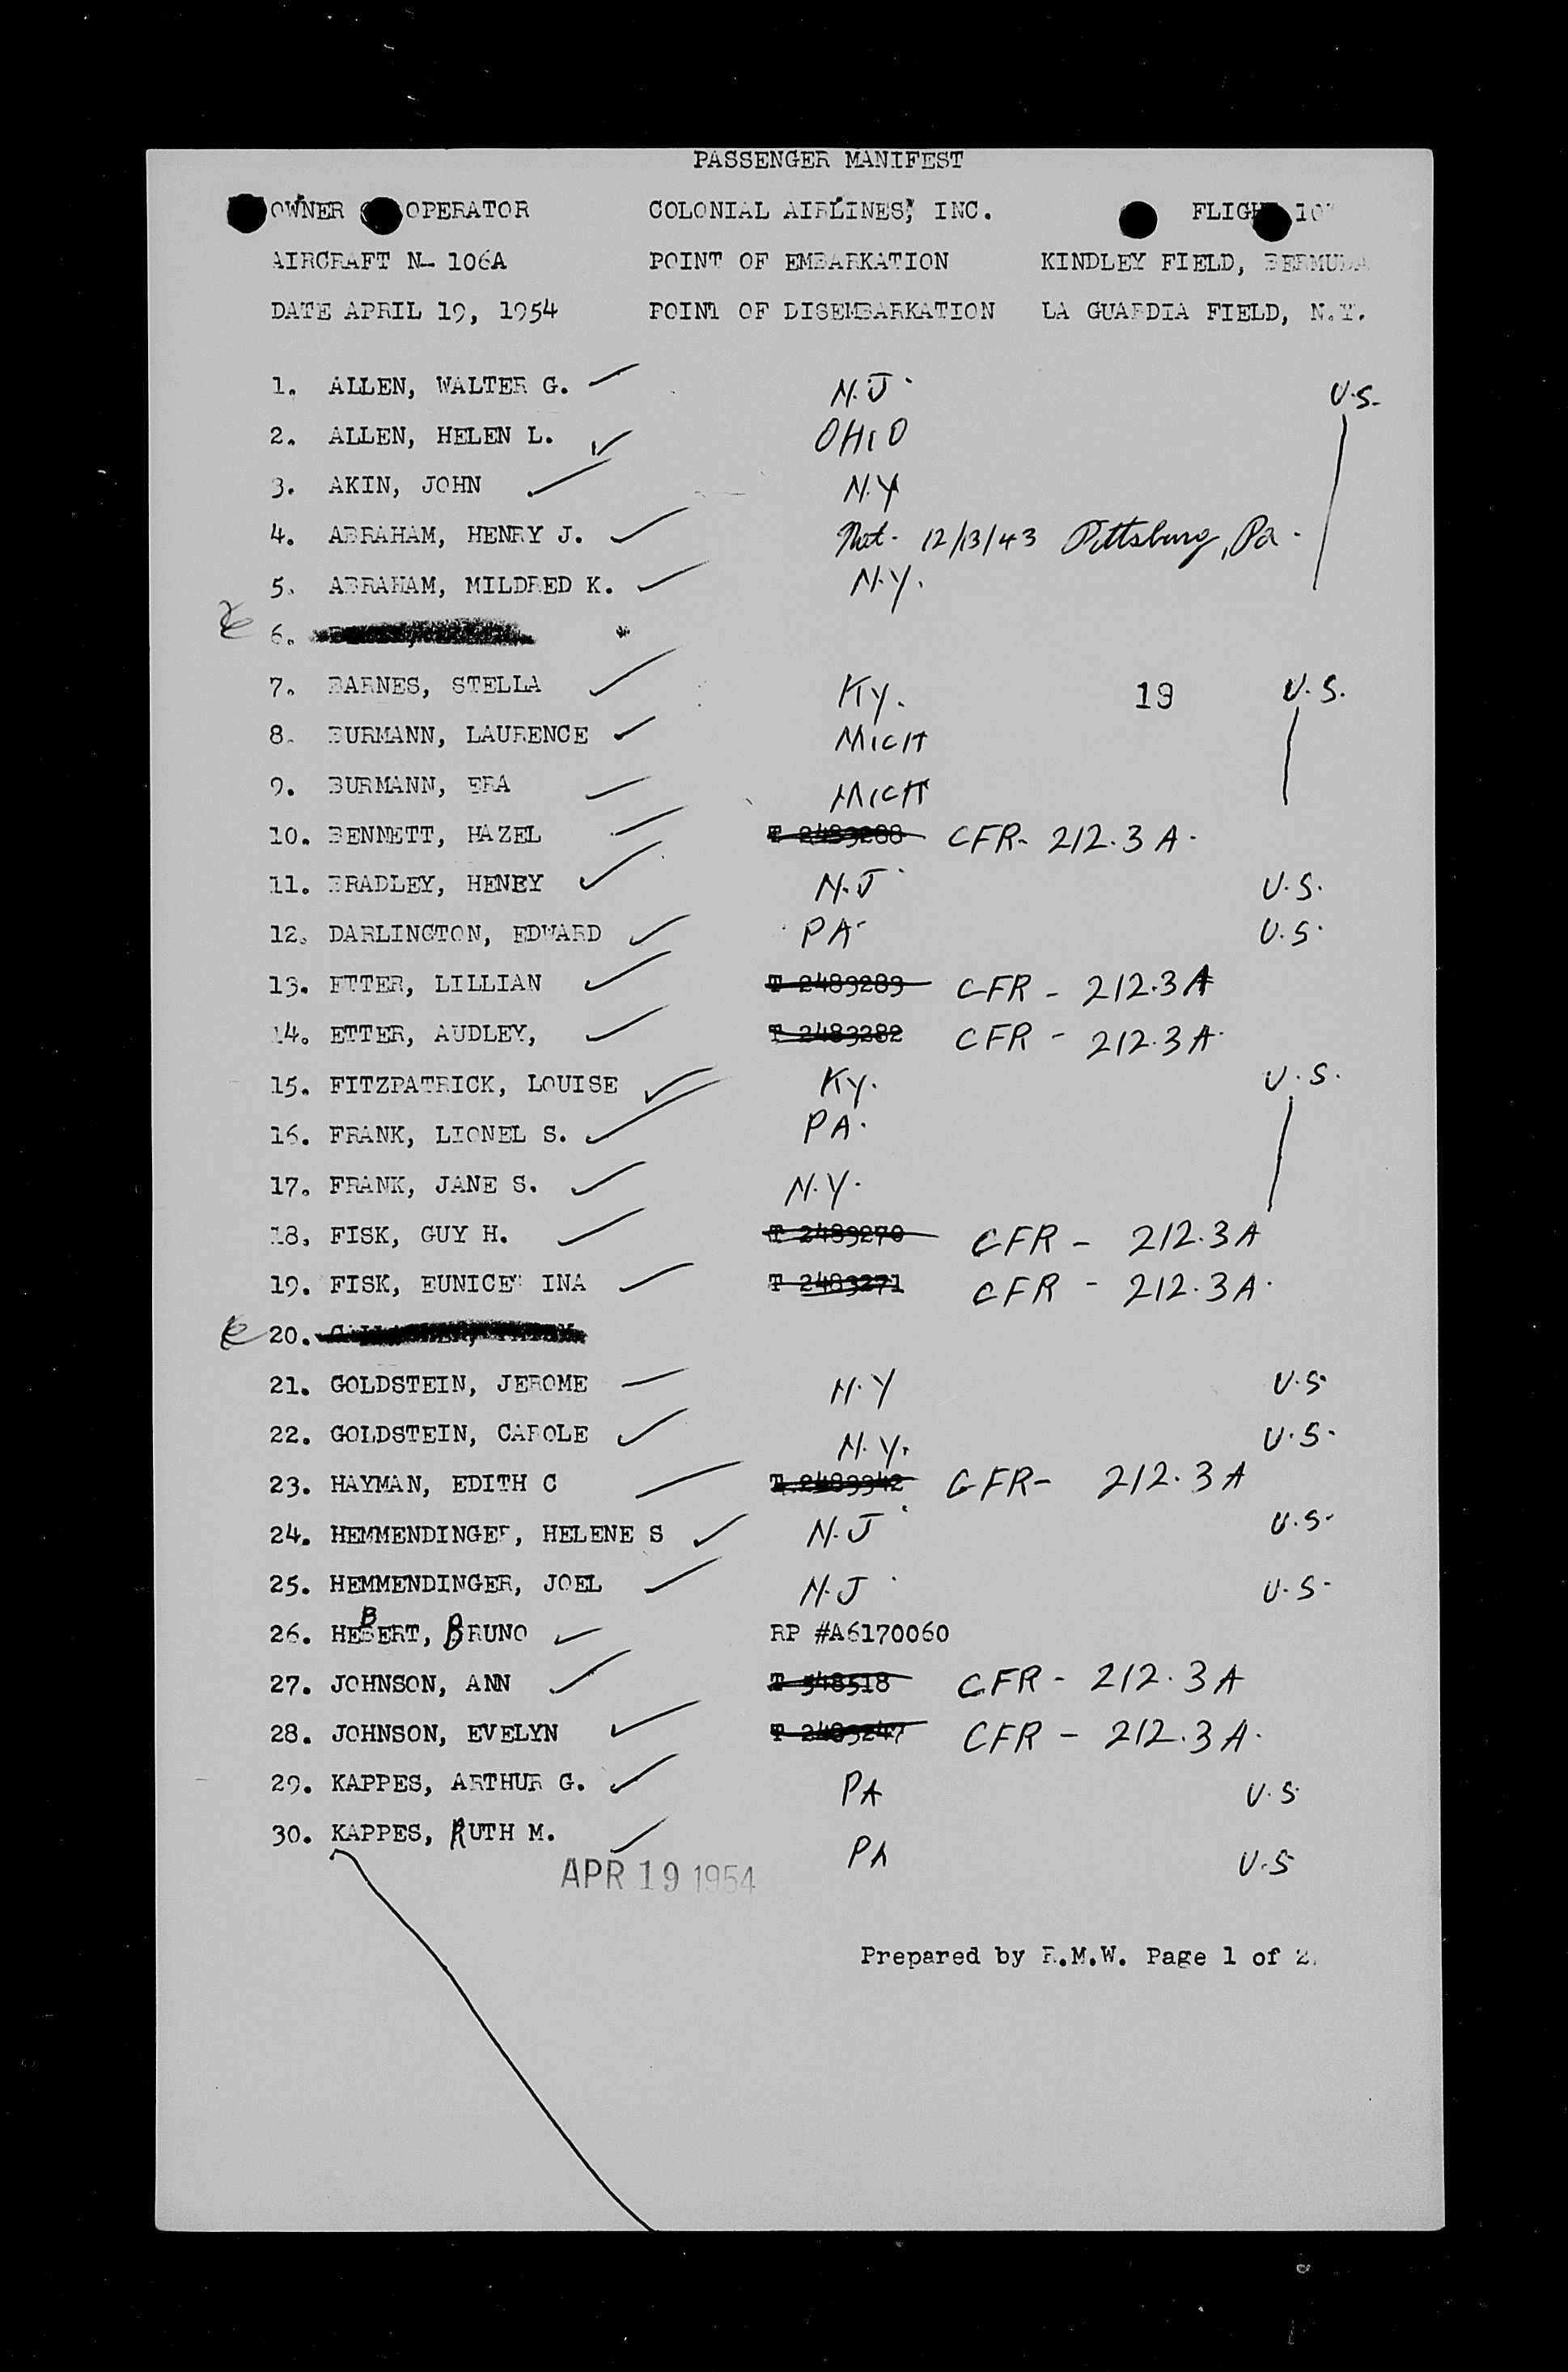 PASSENGER MANIFEST
OWNER OPERATOR COLONIAL AIRLINES, INC. FLIGHT
AIRCRAFT N- 106A POINT OF EMBARKATION KINDLEY FIELD, BERMUDA
DATE APRIL 19, 1954 POINT OF DISEMBARKATION LA GUARDIA FIELD, N.Y.
1. ALLEN, WALTER G. N.J. U.S.
2. ALLEN, HELEN L. OHIO
3. AKIN, JOHN N.Y
4. ABRAHAM, HENRY J. Nat. 12/13/43 Pittsburg, Pa.
5. ABRAHAM, MILDRED K. N.Y.
6.
7. BARNES, STELLA Ky. 19 U.S.
8. BURMANN, LAURENCE MICH
9. BURMANN, ERA MICH
10. BENNETT, HAZEL T 2483288 CFR- 212.3 A.
11. BRADLEY, HENRY N.J. U.S.
12. DARLINGTON, EDWARD PA U.S.
13. ETTER, LILLIAN T 2483283 CFR - 212.3A
14. ETTER, AUDLEY, T 2483282 CFR - 212.3A.
15. FITZPATRICK, LOUISE Ky. U.S.
16. FRANK, LIONEL S. PA.
17. FRANK, JANE S. N.Y.
18. FISK, GUY H. T 2483270 CFR - 212.3A
19. FISK, EUNICE INA T 2483271 CFR - 212.3A.
20.
21. GOLDSTEIN, JEROME N.Y U.S.
22. GOLDSTEIN, CAROLE N.Y. U.S.
23. HAYMAN, EDITH C T 2483342 CFR- 212.3A
24. HEMMENDINGER, HELENE S N.J. U.S.
25. HEMMENDINGER, JOEL N.J. U.S.
26. HEBERT, BRUNO RP #A6170060
27. JOHNSON, ANN T 348518 CFR - 212.3A
28. JOHNSON, EVELYN T 2483247 CFR - 212.3A.
29. KAPPES, ARTHUR G. PA U.S
30. KAPPES, RUTH M. PA U.S
APR 19 1954
Prepared by R.M.W. Page 1 of 2.